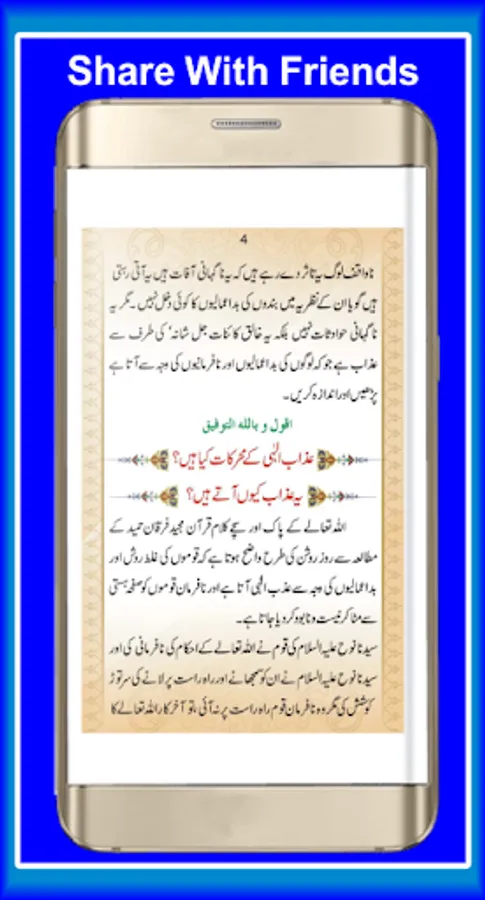 Share With Friends
4
ناواقف لوگ یہ تاثر دے رہے ہیں کہ یہ ناگہانی آفات ہیں یہ آتی رہتی
ہیں گویا ان کے نظریہ میں بندوں کی بداعمالیوں کا کوئی دخل نہیں۔ مگر یہ
ناگہانی حوادثات نہیں بلکہ یہ خالق کائنات جل شانہ' کی طرف سے
عذاب ہے جو کہ لوگوں کی بداعمالیوں اور نافرمانیوں کی وجہ سے آتا ہے
پڑھیں اور اندازہ کریں۔
اقول و بالله التوفيق
عذاب الٰہی کے محرکات کیا ہیں؟
یہ عذاب کیوں آتے ہیں؟
اللہ تعالےٰ کے پاک اور سچے کلام قرآن مجید فرقان حمید کے
مطالعہ سے روز روشن کی طرح واضح ہوتا ہے کہ قوموں کی غلط روش اور
بداعمالیوں کی وجہ سے عذب الٰہی آتا ہے اور نافرمان قوموں کو صفحہ ہستی
سے مٹا کر نیست و نابود کر دیا جاتا ہے۔
سیدنا نوح علیہ السلام کی قوم نے اللہ تعالےٰ کے احکام کی نافرمانی کی اور
سیدنا نوح علیہ السلام نے ان کو سمجھانے اور راہ راست پر لانے کی سر توڑ
کوشش کی مگر وہ نافرمان قوم راہ راست پر نہ آئی، تو آخر کار اللہ تعالےٰ کا